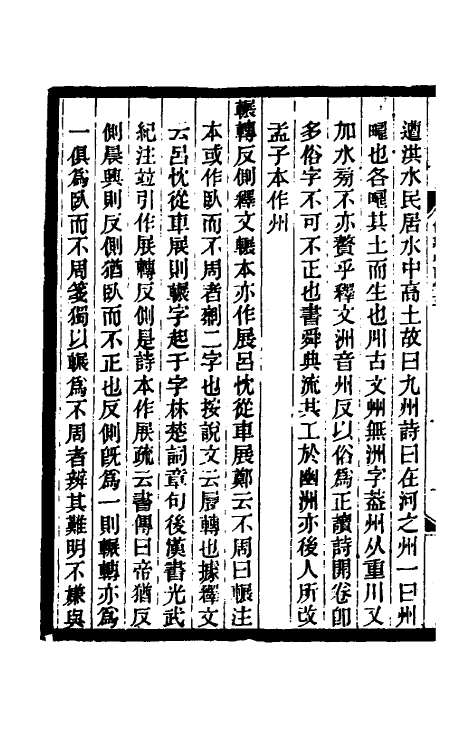 遭洪水民居水中高土故曰九州詩曰在河之州一曰州
疇也各疇其土而生也𠂕古文州無洲字葢州从重川又
加水旁不亦贅乎釋文洲音州反以俗爲正讀詩開卷卽
多俗字不可不正也書舜典流共工於幽洲亦後人所改
孟子本作州
輾轉反側釋文輾本亦作展呂忱從車展鄭云不周曰輾注
本或作臥而不周者剩二字也按說文云㞡轉也據釋文
云呂忱從車展則輾字起于字林楚詞章句後漢書光武
紀注竝引作展轉反側是詩本作展疏云書傳曰帝猶反
側晨興則反側猶臥而不正也反側旣爲一則輾轉亦爲
一俱爲臥而不周箋獨以輾爲不周者辨其難明不嫌與